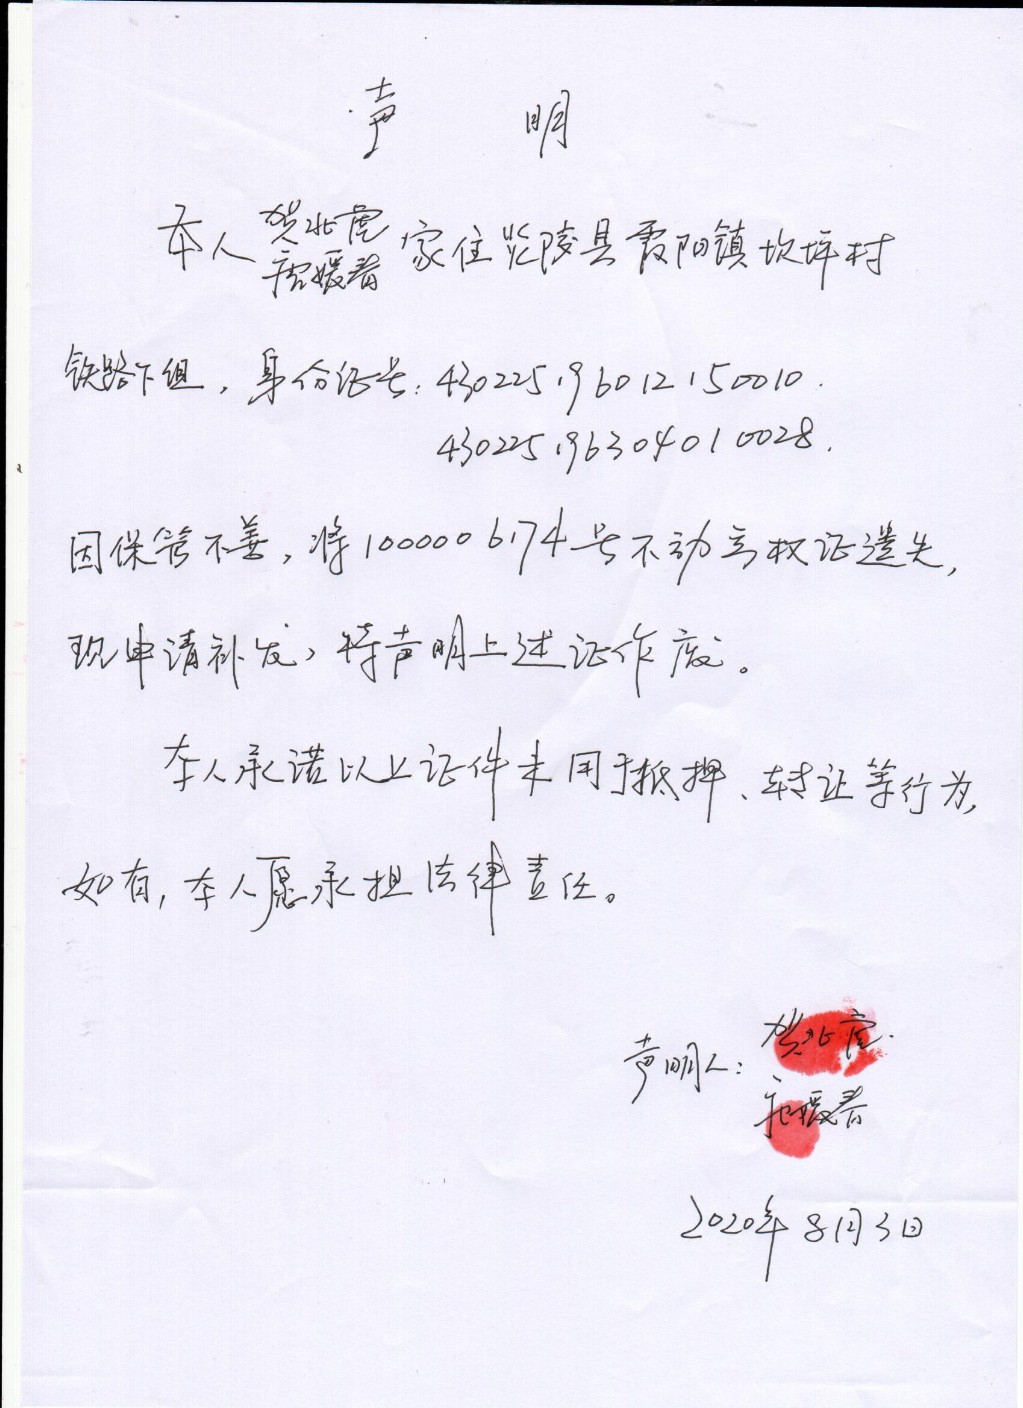 声 明
本人 贺北虎
唐媛春 家住炎陵县霞阳镇坎坪村
铁路下组，身份证号：430225196012150010.
430225196304010028.
因保管不善，将1000006174号不动产权证遗失，
现申请补发，特声明上述证作废。
本人承诺以上证件未用于抵押、转让等行为，
如有，本人愿承担法律责任。
声明人：贺北虎.
唐媛春
2020年8月3日